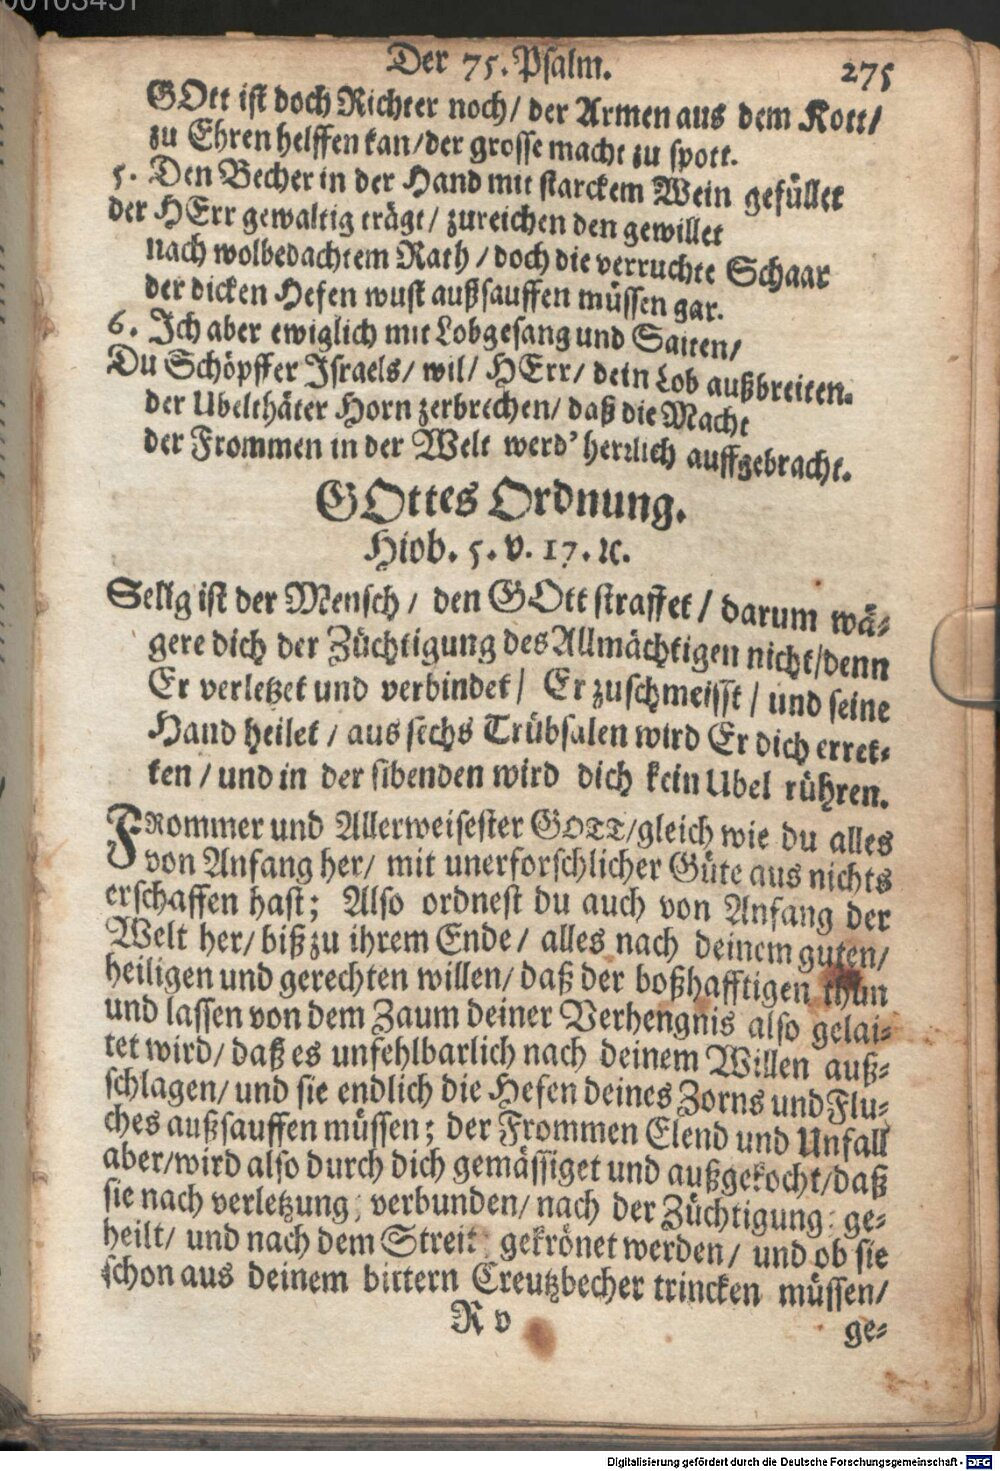 00103457
Der 75. Psalm. 275
GOtt ist doch Richter noch/ der Armen aus dem Kott/
zu Ehren helffen kan/der grosse macht zu spott.
5. Den Becher in der Hand mit starckem Wein gefüllet
der HErr gewaltig trägt/ zureichen den gewillet
nach wolbedachtem Rath / doch die verruchte Schaar
der dicken Hefen wust außsauffen müssen gar.
6. Ich aber ewiglich mit Lobgesang und Saiten/
Du Schöpffer Israels/ wil/ HErr/ dein Lob außbreiten.
der Ubelthäter Horn zerbrechen/ daß die Macht
der Frommen in der Welt werd' herrlich auffgebracht.
GOttes Ordnung.
Hiob. 5. v. 17. ꝛc.
Selig ist der Mensch / den GOtt straffet / darum wä-
gere dich der Züchtigung des Allmächtigen nicht/denn
Er verletzet und verbindet / Er zuschmeisst / und seine
Hand heilet / aus sechs Trübsalen wird Er dich erret-
ten / und in der sibenden wird dich kein Ubel rühren.
FRommer und Allerweisester GOTT/gleich wie du alles
von Anfang her/ mit unerforschlicher Güte aus nichts
erschaffen hast; Also ordnest du auch von Anfang der
Welt her/ biß zu ihrem Ende/ alles nach deinem guten/
heiligen und gerechten willen/ daß der boßhafftigen thun
und lassen von dem Zaum deiner Verhengnis also gelai-
tet wird/ daß es unfehlbarlich nach deinem Willen auß-
schlagen/ und sie endlich die Hefen deines Zorns und Flu-
ches außsauffen müssen; der Frommen Elend und Unfall
aber/wird also durch dich gemässiget und außgekocht/daß
sie nach verletzung, verbunden/ nach der Züchtigung ge-
heilt/ und nach dem Streit gekrönet werden/ und ob sie
schon aus deinem bittern Creutzbecher trincken müssen/
R v ge-
Digitalisierung gefördert durch die Deutsche Forschungsgemeinschaft - DFG